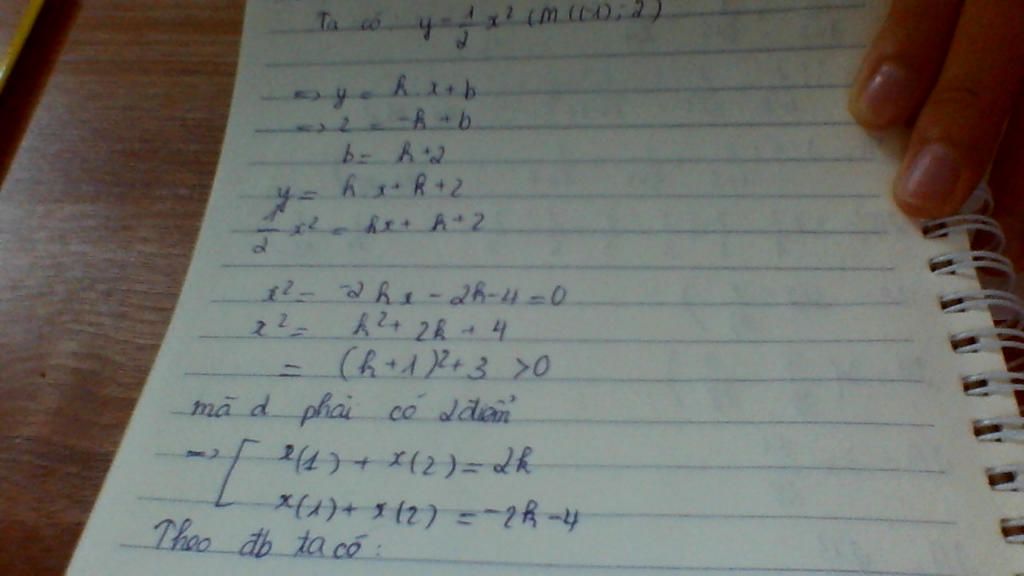 Ta có: y = 1/2 x² (M((-1); 2)
=> y = k x + b
=> 2 = -k + b
b = k + 2
y = k x + k + 2
1/2 x² = kx + k + 2
x² = -2kx - 2k - 4 = 0
x² = k² + 2k + 4
= (k + 1)² + 3 > 0
mã d phải có 2 điểm
=> [ x(1) + x(2) = 2k
x(1) + x(2) = -2k - 4
Theo đb ta có: